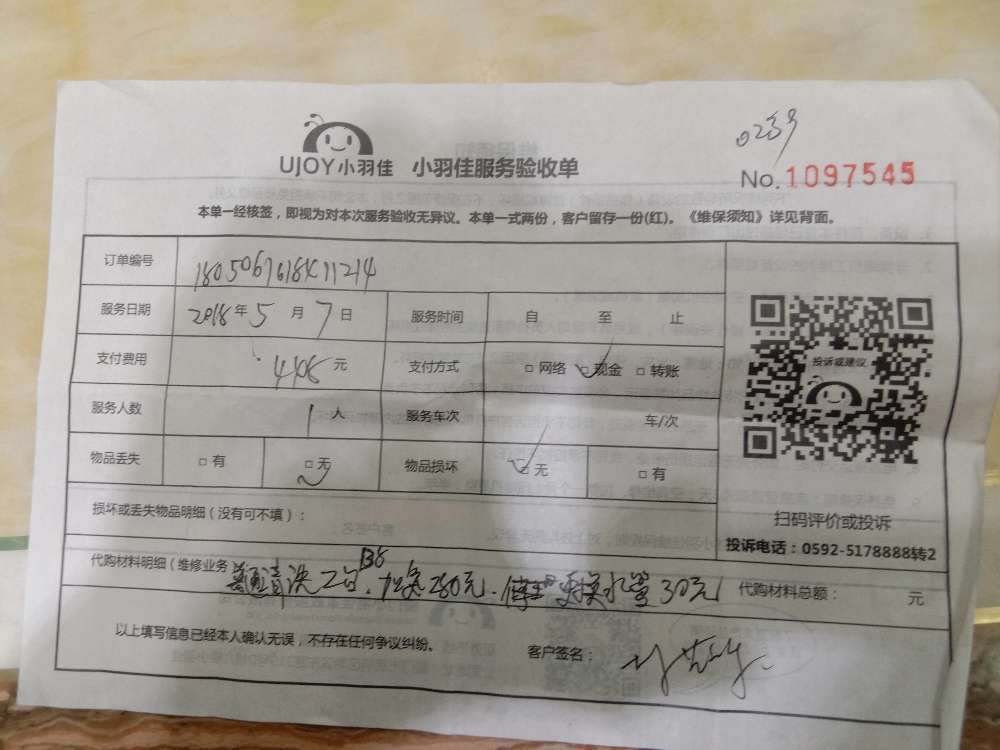 0239
UJOY小羽佳 小羽佳服务验收单
No.1097545
本单一经核签，即视为对本次服务验收无异议。本单一式两份，客户留存一份(红)。《维保须知》详见背面。
订单编号
服务日期 2018年5月7日 服务时间 自 至 止
支付费用 元 支付方式 □网络 □现金 □转账
服务人数 1人 服务车次 车/次
物品丢失 □有 □无 物品损坏 □无 □有
投诉或建议
扫码评价或投诉
投诉电话：0592-5178888转2
损坏或丢失物品明细（没有可不填）：
代购材料明细（维修业务 普通清洗2台 280元 更换水 30元 代购材料总额： 元
以上填写信息已经本人确认无误，不存在任何争议纠纷。 客户签名：